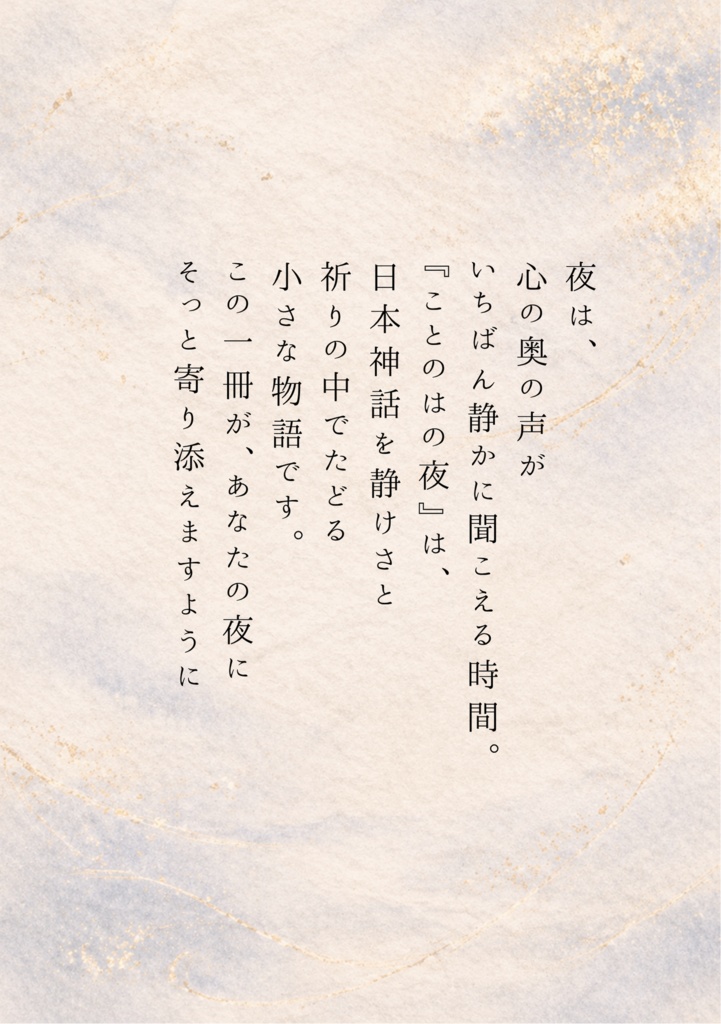 夜は、
心の奥の声が
いちばん静かに聞こえる時間。
『ことのはの夜』は、
日本神話を静けさと
祈りの中でたどる
小さな物語です。
この一冊が、あなたの夜に
そっと寄り添えますように